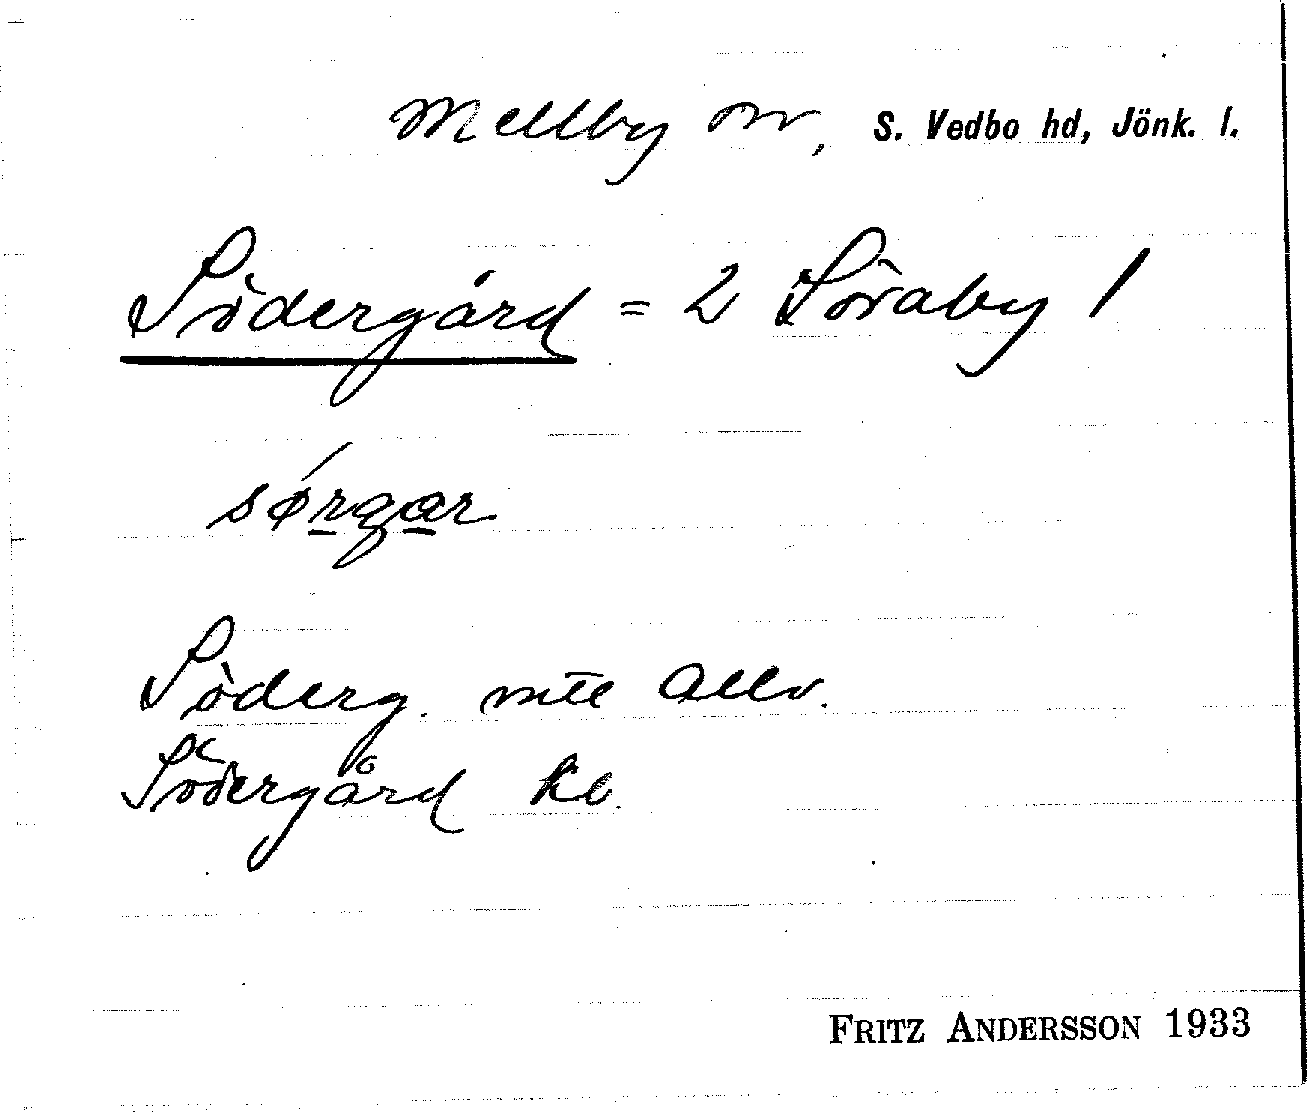 Mellby sn, S. Vedbo hd, Jönk. l.
Södergård = 2 Söraby 1
sørgar
Söderg. mtl Allv.
Södergård kb.
FRITZ ANDERSSON 1933